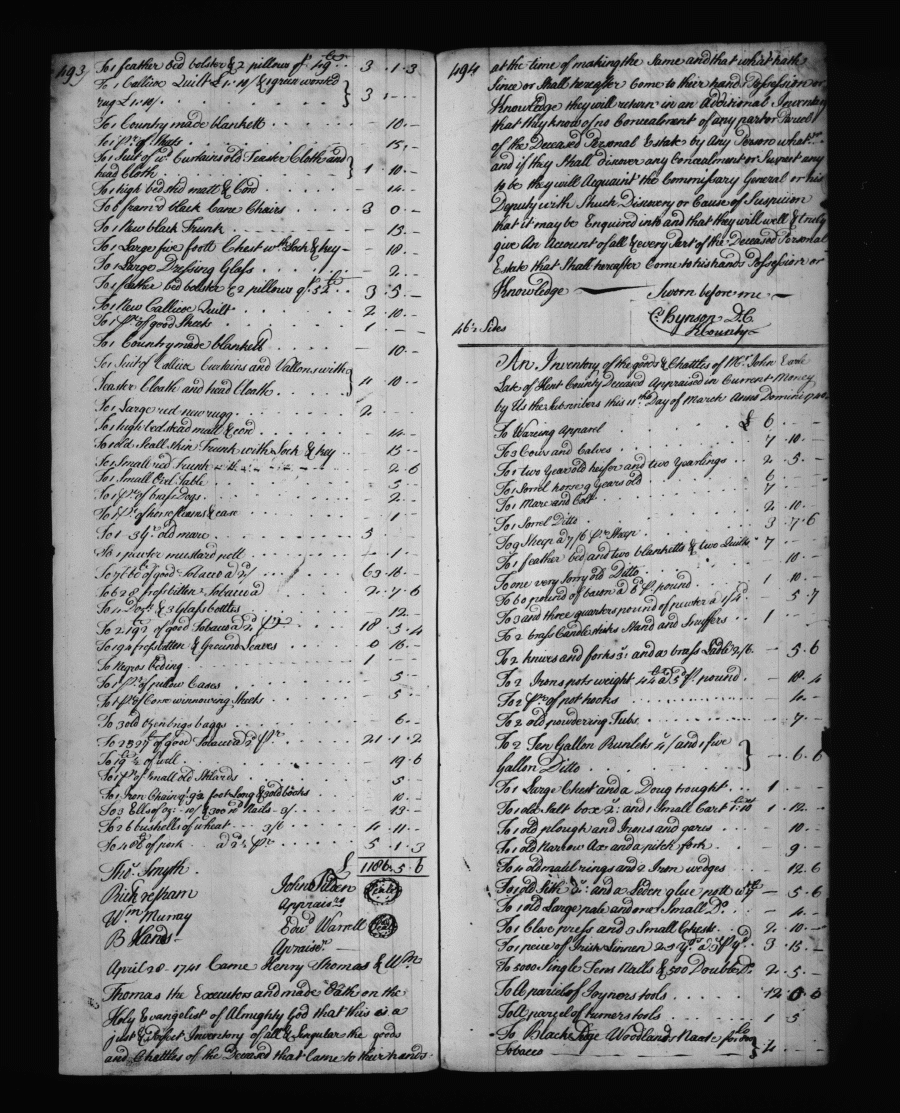 493
To 1 feather bed bolster & 2 pillows qt. 49 lb . . 3 . 1 . 3
To 1 Callicoe Quilt £1 . 10/ & 1 green worsted
rug £1 . 10/ . . . 3 . - . -
To 1 Country made blankett . . . - . 10 . -
To 1 pr. of Sheets . . . 15 . -
To 1 Suit of wt. Curtains old Teaster Cloth and
head Cloth . . . 1 . 10 . -
To 1 high bedstid matt & Cord . . . 14 . -
To 6 fram'd black Cane Chairs . . . 3 . 0 . -
To 1 New black Trunk . . . - . 15 . -
To 1 Large five foott Chest wth. Lock & key - . 18 . -
To 1 Large Dressing Glass . . . - . 2 . -
To 1 feather bed bolster & 2 pillows qt. 52 lb . 3 . 5 . -
To 1 New Callicoe Quilt . . . 2 . 10 . -
To 1 pr. of good Sheets . . . 1 . - . -
To 1 Country made blankett . . . 10 . -
To 1 Suit of Callicoe Curtains and Vallons with
Teaster Cloath and head Cloath . . . 4 . 10 . -
To 1 Large red new rugg . . . 2
To 1 high bedstead matt & cord . . . 14 . -
To 1 old Seall Skin Trunk with Lock & key . . . 15 . -
To 1 Small red Trunk . . . 2 . 6
To 1 Small Ovel Table . . . 5 . -
To 1 pr. of brass Dogs . . . 2 . -
To 1 pr. of horse fleams & case . . . 1 . -
To 1 3 yr. old mare . . . 3
To 1 pewter mustard pott . . . - . 1 . -
To of good Tobacco a 2d/ . . . 63 . 16 . -
To 628 frostbitten Tobacco a . . . 2 . 7 . 6
To 4 Dozn. & 3 Glass bottles . . . 12 . -
To of good Tobacco a 2d pr. . . . 18 . 3 . 4
To 194 frostbitten & Ground Leaves . . . 0 . 16 . -
To Negros beding . . . 1 . - . -
To 1 pr. of pillow Cases . . . 5 . -
To 1 pr. of Corse winnowing Sheets . . . 5 . -
To 3 old Ozenbrigs baggs . . . 6 . -
To 2529 lb of good Tobacco a 2d pr. . . . 21 . 1 . 2
To 19 lb ½ of wool . . . 19 . 6
To 1 pr. of Small old Stilards . . . 5
To 1 Iron Chain foot Long & 2 old bocks . . . 10 . -
To 3 Ells of oz: 10/ & 300 10d Nails 3/ . . . - . 13 . -
To 26 bushells of wheat . . . 3/6 . . . 4 . 11 . -
To of pork . . . a 2½ pr. . . . 5 . 1 . 3
£ 1186 . 5 . 6
Thos. Smyth
Rich Pelham
Wm Murray
B Hands
John Tilden Seal
Appraisr.
Edwd Warrell Seal
Apraisr.
April 28 . 1741 Came Henry Thomas & Wm.
Thomas the Executors and made Oath on the
Holy Evangelist of Almighty God that this is a
Just & Perfect Inventory of all & Singular the goods
and Chattles of the Deceased that Came to their hands
494
at the time of making the Same and that what hath
Since or Shall hereafter Come to their hands Possession or
Knowledge they will return in an Additional Inventory
that they know of no Concealment of any part or Parcel
of the Deceased Personal Estate by Any Person whatso.
and if they Shall discover any Concealment or Suspect any
to be they will Acquaint the Commissary General or his
Deputy with Shuch Discovery or Cause of Suspicion
that it may be Enquired into and that they will well & truly
give An Account of all & every Part of the Deceased Personal
Estate that Shall hereafter Come to his hands Possession or
Knowledge — Sworn before me -
C Hynson D. C.
K County
46½ Sides
An Inventory of the goods & Chattles of Mr. John Earle
Late of Kent County Deceased Appraised in Current Money
by Us the Subscribers this 11th Day of March Anno Domini 1740
To Wareing Apparel . . . £ 6 . . -
To 3 Cows and Calves . . . 7 . 10 . -
To 1 two Year old heifer and two Yearlings . . 2 . 5 . -
To 1 Sorrel horse 9 Years old . . . 6 . - -
To 1 Mare and Colt . . . 7
To 1 Sorrel Ditto . . . 2 . 10 . -
To 9 Sheep a 7/6 pr. Sheep . . . 3 . 7 . 6
To 1 feather bed and two blanketts & two Quilts 7 . - -
To one very Sorry old Ditto . . . 10 . -
To 60 pound of bacon a 6d pr. pound . . . 1 . 10 . -
To 3 and three quarters pound of pewter a 1/4d . - . 5 . 7
To 2 brass Candlesticks Stand and Snuffers . . 1 . - . -
To 2 knives and forks 3/: and a brass Ladle 2/6. - . 5 . 6
To 2 Irons pots weight 44 lb a 5d pr. pound . . - . 18 . 4
To 2 pr. of pot hooks . . . - . 4 . -
To 2 old powdering Tubs . . . - . 7 . -
To 2 Ten Gallon Runlets 4/ and 1 five
Gallon Ditto . . . 6 . 6
To 1 Large Chest and a Doug trought . . 1 . . -
To 1 old Salt box 2/: and 1 Small Cart £1.10 1 . 12 . -
To 1 old plough and Irons and gares . . . 10 . -
To 1 old Narrow Axe and a pitch fork . . . 9 . -
To 4 old maul rings and 2 Iron wedges . . . 12 . 6
To 1 old Sith 2/: and a Leden glue pott . . - . 5 . 6
To 1 old Large pale and one Small Do. . . - . 4 . -
To 1 Close press and 3 Small Chests . . 2 . 10 . -
To 1 piece of Irish Linnen 25 yds. a 3/ pr yd. . 3 . 15 . -
To 5000 Single Tens Nalls & 500 Double Do. 2 . 5 . -
To A parcel of Joyners tools . . . 12 . 0 . 6
To A parcel of turners tools . . . 1 . 5
To Black Sidge Woodland Naate for
Tobacco . . . 4 . . -